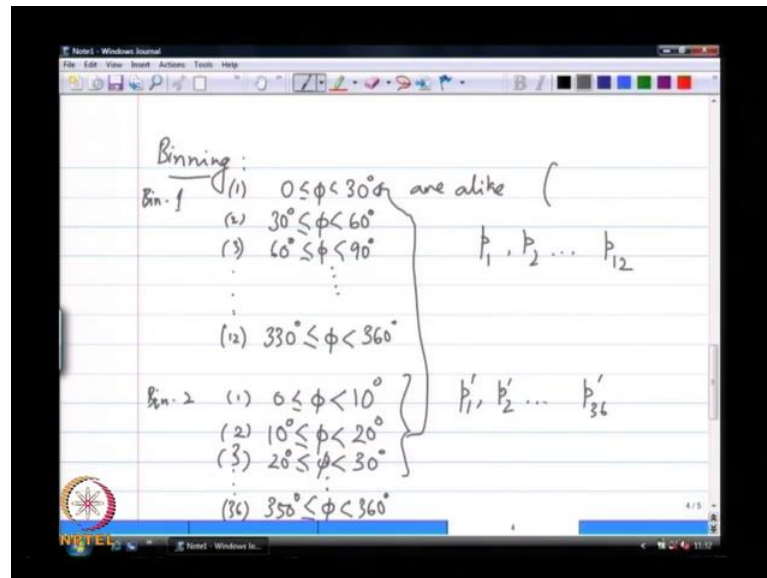 Note1 - Windows Journal
File Edit View Insert Actions Tools Help
B I
Binning :
Bin. 1 (1) 0 ≤ ϕ < 30° are alike (
(2) 30° ≤ ϕ < 60°
(3) 60° ≤ ϕ < 90° p1, p2 ... p12
⋮ ⋮
(12) 330° ≤ ϕ < 360°
Bin. 2 (1) 0 ≤ ϕ < 10° p1', p2' ... p36'
(2) 10° ≤ ϕ < 20°
(3) 20° ≤ ϕ < 30°
⋮ ⋮
(36) 350° ≤ ϕ < 360°
4 / 5
4
NPTEL
Note1 - Windows Jo...
11:32